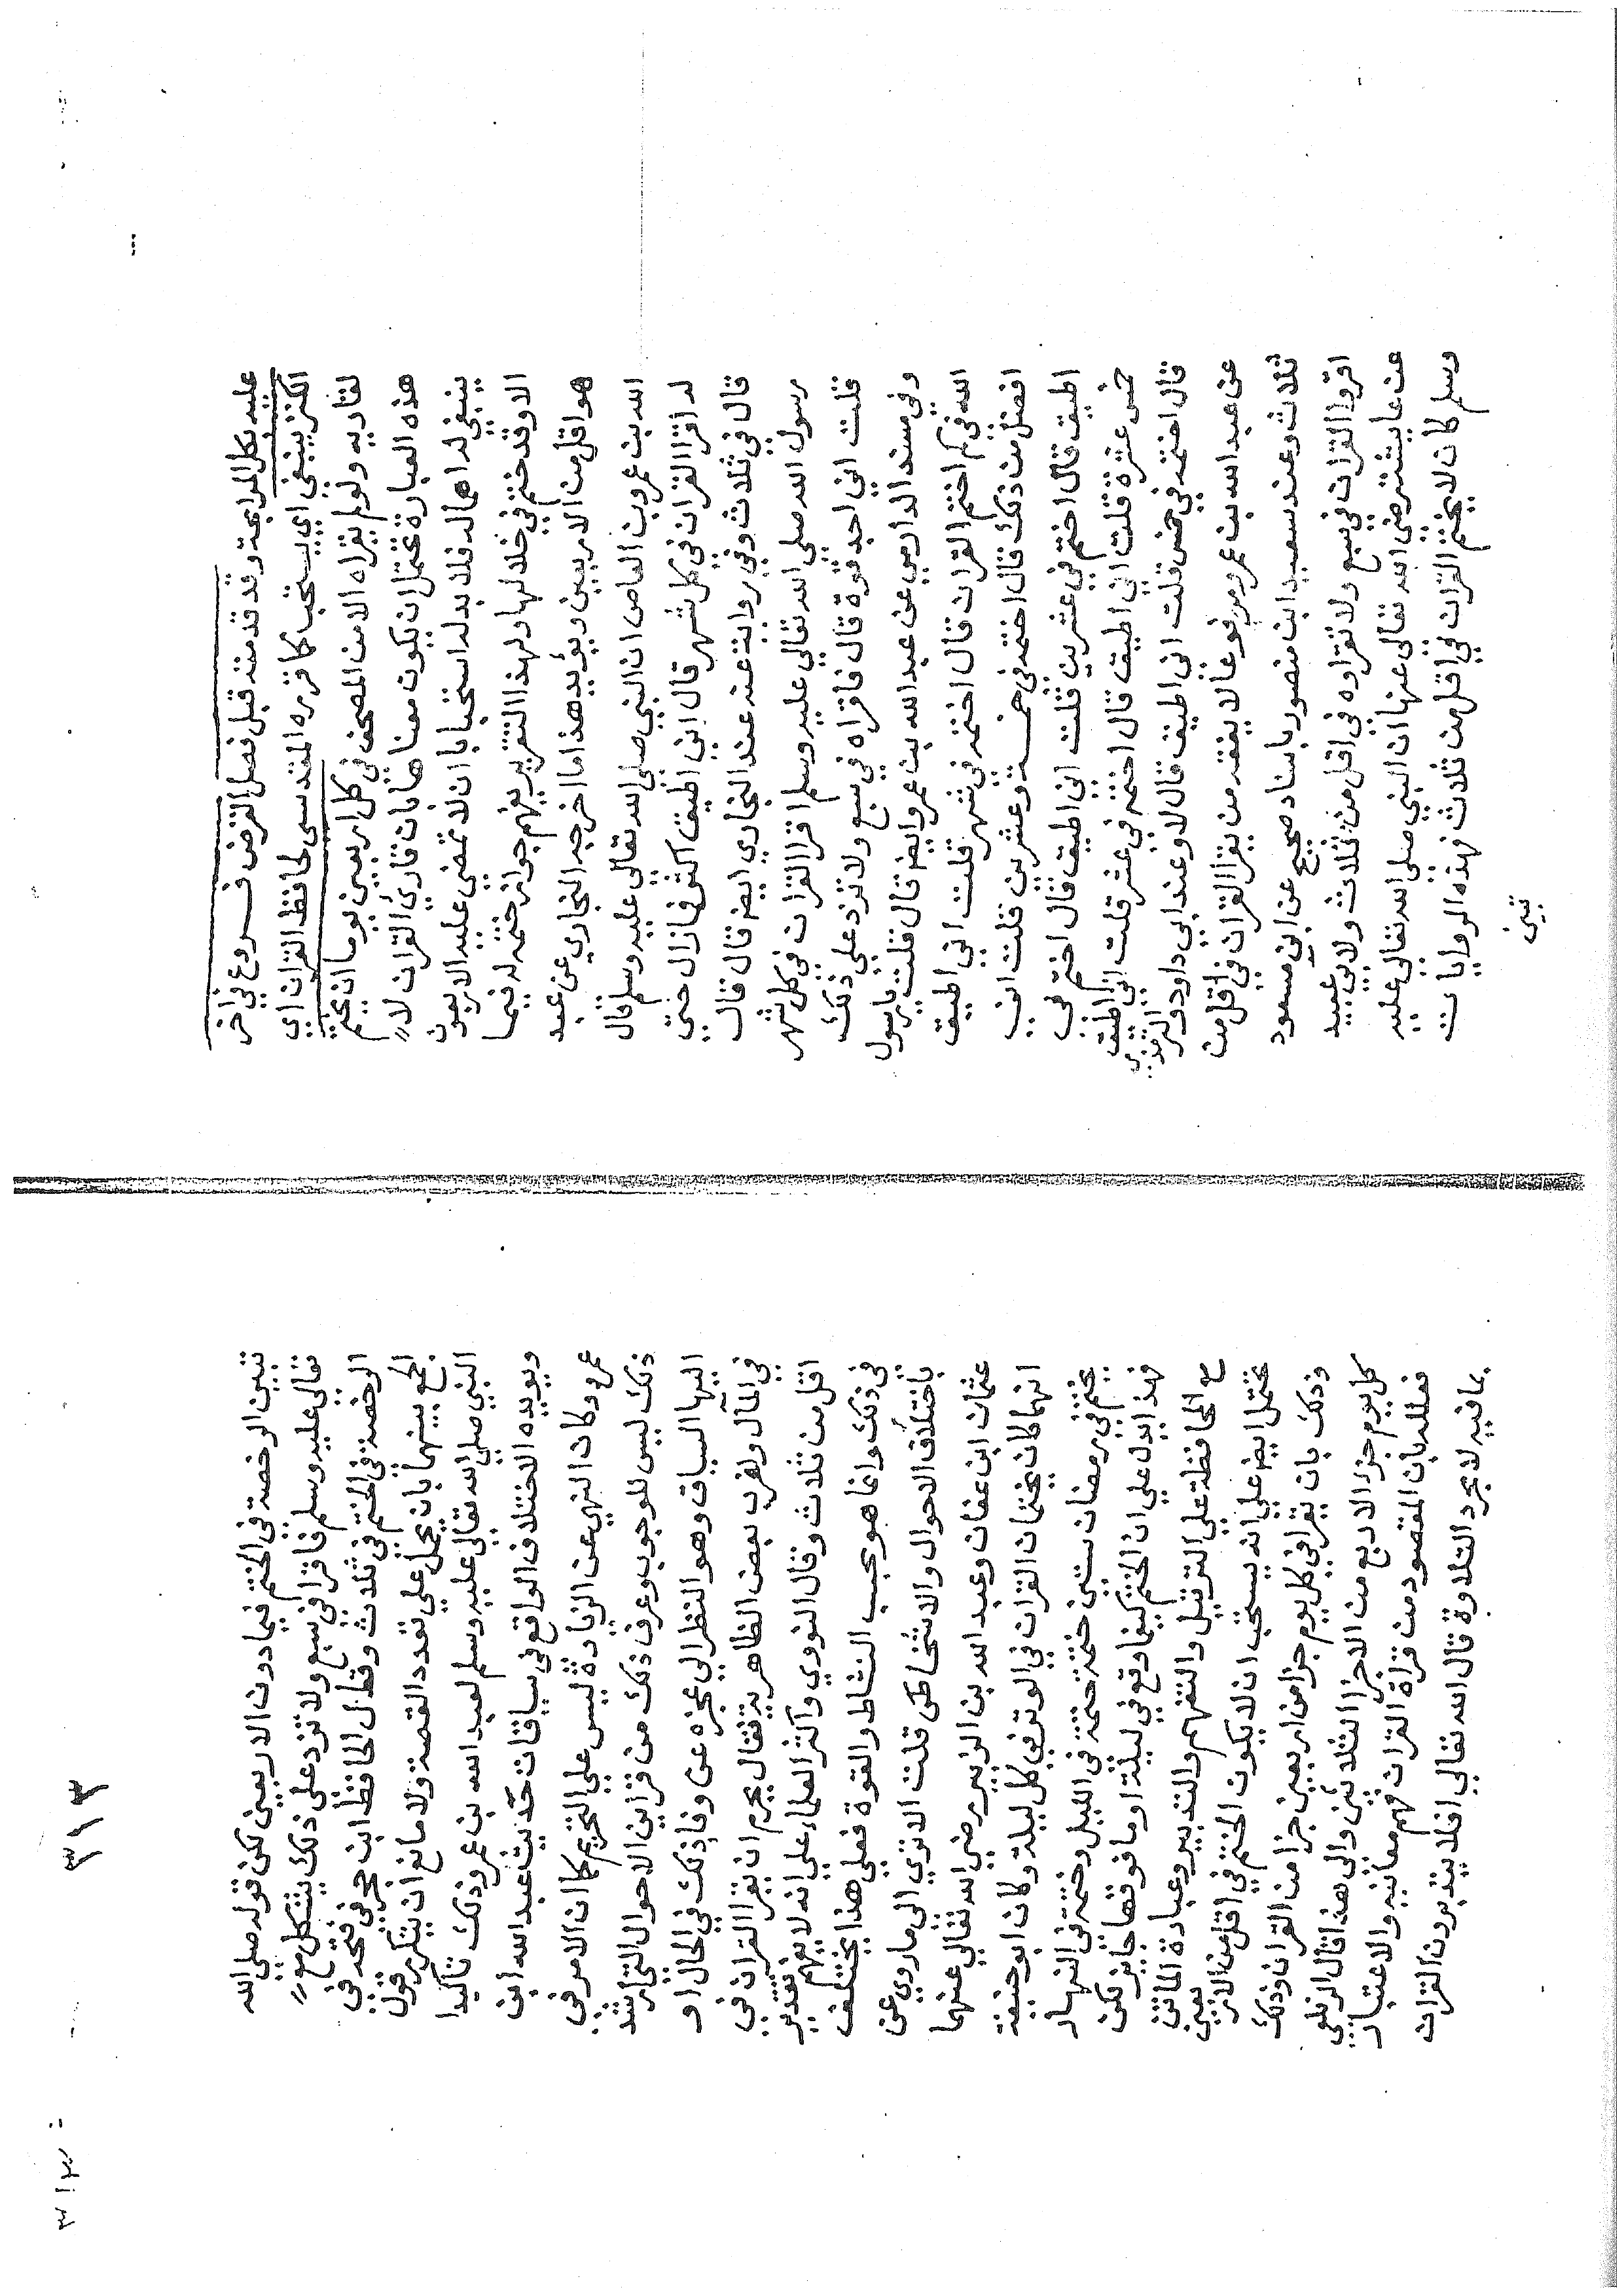 عليه بكل المرابحة وقد قدمته قبل فصل القرض فــروع في اخر
الكنز ينبغي اي يستحب كما قرره المقدسي لحافظ القران اي
لقاريه ولو لم يقراه الا من المصحف في كل اربعين يوما ان يختم
هذه العبارة تحتمل ان يكون معناها بان قاريء القران لا
ينبغي له اهماله فلا بد له استحبابا ان لا تمضي عليه الاربعون
الا وقد ختم في خلالها ولهذا التقرير يفهم جواز ختمه له فيما
هو اقل من الاربعين ويؤيد هذا ما اخرجه البخاري عن عبد
الله بن عمرو بن العاص ان النبي صلي الله تعالي عليه وسلم قال
له اقرا القران في كل شهر قال اني اطيق اكثر فما زال حتي
قال في ثلاث وفي رواية عند البخاري ايضا قال قال
رسول الله صلي الله تعالي عليه وسلم اقرا القران في كل شهر
قلت اني اجد قوة قال فاقراه في سبع ولا تزد علي ذلك
وفي مسند الدارمي عن عبد الله بن عمرو ايضا قال قلت يا رسول
الله في كم اختم القران قال اختمه في شهر قلت اني اطيق
افضل من ذلك قال اختمه في خمسة وعشرين قلت اني
اطيق قال اختم في عشرين قلت اني اطيق قال اختم في
خمس عشرة قلت اني اطيق قال اختمه في عشر قلت اني اطيق
قال اختمه في خمس قلت اني اطيق قال لا وعند ابي داود والترمذي
عن عبد الله بن عمرو مرفوعا لا يفقه من يقرا القران في اقل من
ثلاث وعند سعيد ابن منصور باسناد صحيح عن ابن مسعود
اقروا القران في سبع ولا تقراوه في اقل من ثلاث ولابي عبيد
عن عايشة رضي الله تعالي عنها ان النبي صلي الله تعالي عليه
وسلم كان لا يختم القران في اقل من ثلاث فهذه الروايات
تبين
٣١٣
تبين الرخصة في الختم فيما دون الاربعين لكن قوله صلي الله
تعالي عليه وسلم فاقرا في سبع ولا تزد علي ذلك يشكل مع
الرخصة في الختم في ثلاث وقد قال الحافظ ابن حجر في فتحه في
الجمع بينهما بان يحمل علي تعدد القصة ولا مانع ان يتكرر قول
النبي صلي الله تعالي عليه وسلم لعبد الله بن عمرو ذلك تاكيدا
ويويده الاختلاف الواقع في سياقات حديث عبد الله ابن
عمرو وكان النهي عن الزيادة ليس علي التحريم كما ان الامر في
ذلك ليس للوجوب وعرف ذلك من قراين الاحوال التي ارشد
اليها السياق وهو النظر الي عجزه عن وفا ذلك في الحال او
في المآل ولغرب بعض الظاهرية فقال يحرم ان يقرا القران في
اقل من ثلاث وقال النووي واكثر العلماء علي انه لا يفهم تقدير
في ذلك وانما هو بحسب النشاط والقوة فعلي هذا يختلف
باختلاف الاحوال والاشخاص قلت الا تري الي ما روي عن
عثمان ابن عفان وعبد الله بن الزبير رضي الله تعالي عنهما
انهما كان يختمان القران في الوتر في كل ليلة وكان ابو حنيفة
يختم في رمضان ستين ختمة ختمة في الليل وختمة في النهار
فهذا يدل علي ان الختم كيفما وقع في ليلة او ما فوقها جايز لكن
مع المحافظة علي الترتيل والتفهم والتدبير وعبارة الماتن
تحتمل ايضا علي انه يستحب ان لا يكون الختم في اقل من الاربعين
وذلك بان يقرا في كل يوم جزا من اربعين جزا من القران وذلك
كل يوم جزء الا ربع من الاجزا الثلاثين والي هذا قال الزيلعي
فعلله بان المقصود من قراة القران فهم معانيه والاعتبار
بما فيه لا مجرد التلاوة قال الله تعالي افلا يتدبرون القران